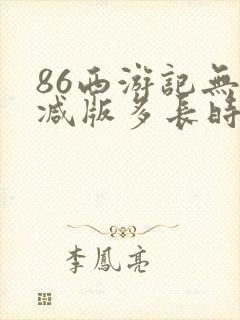 86西游記無
減版多長時
李鳳亮